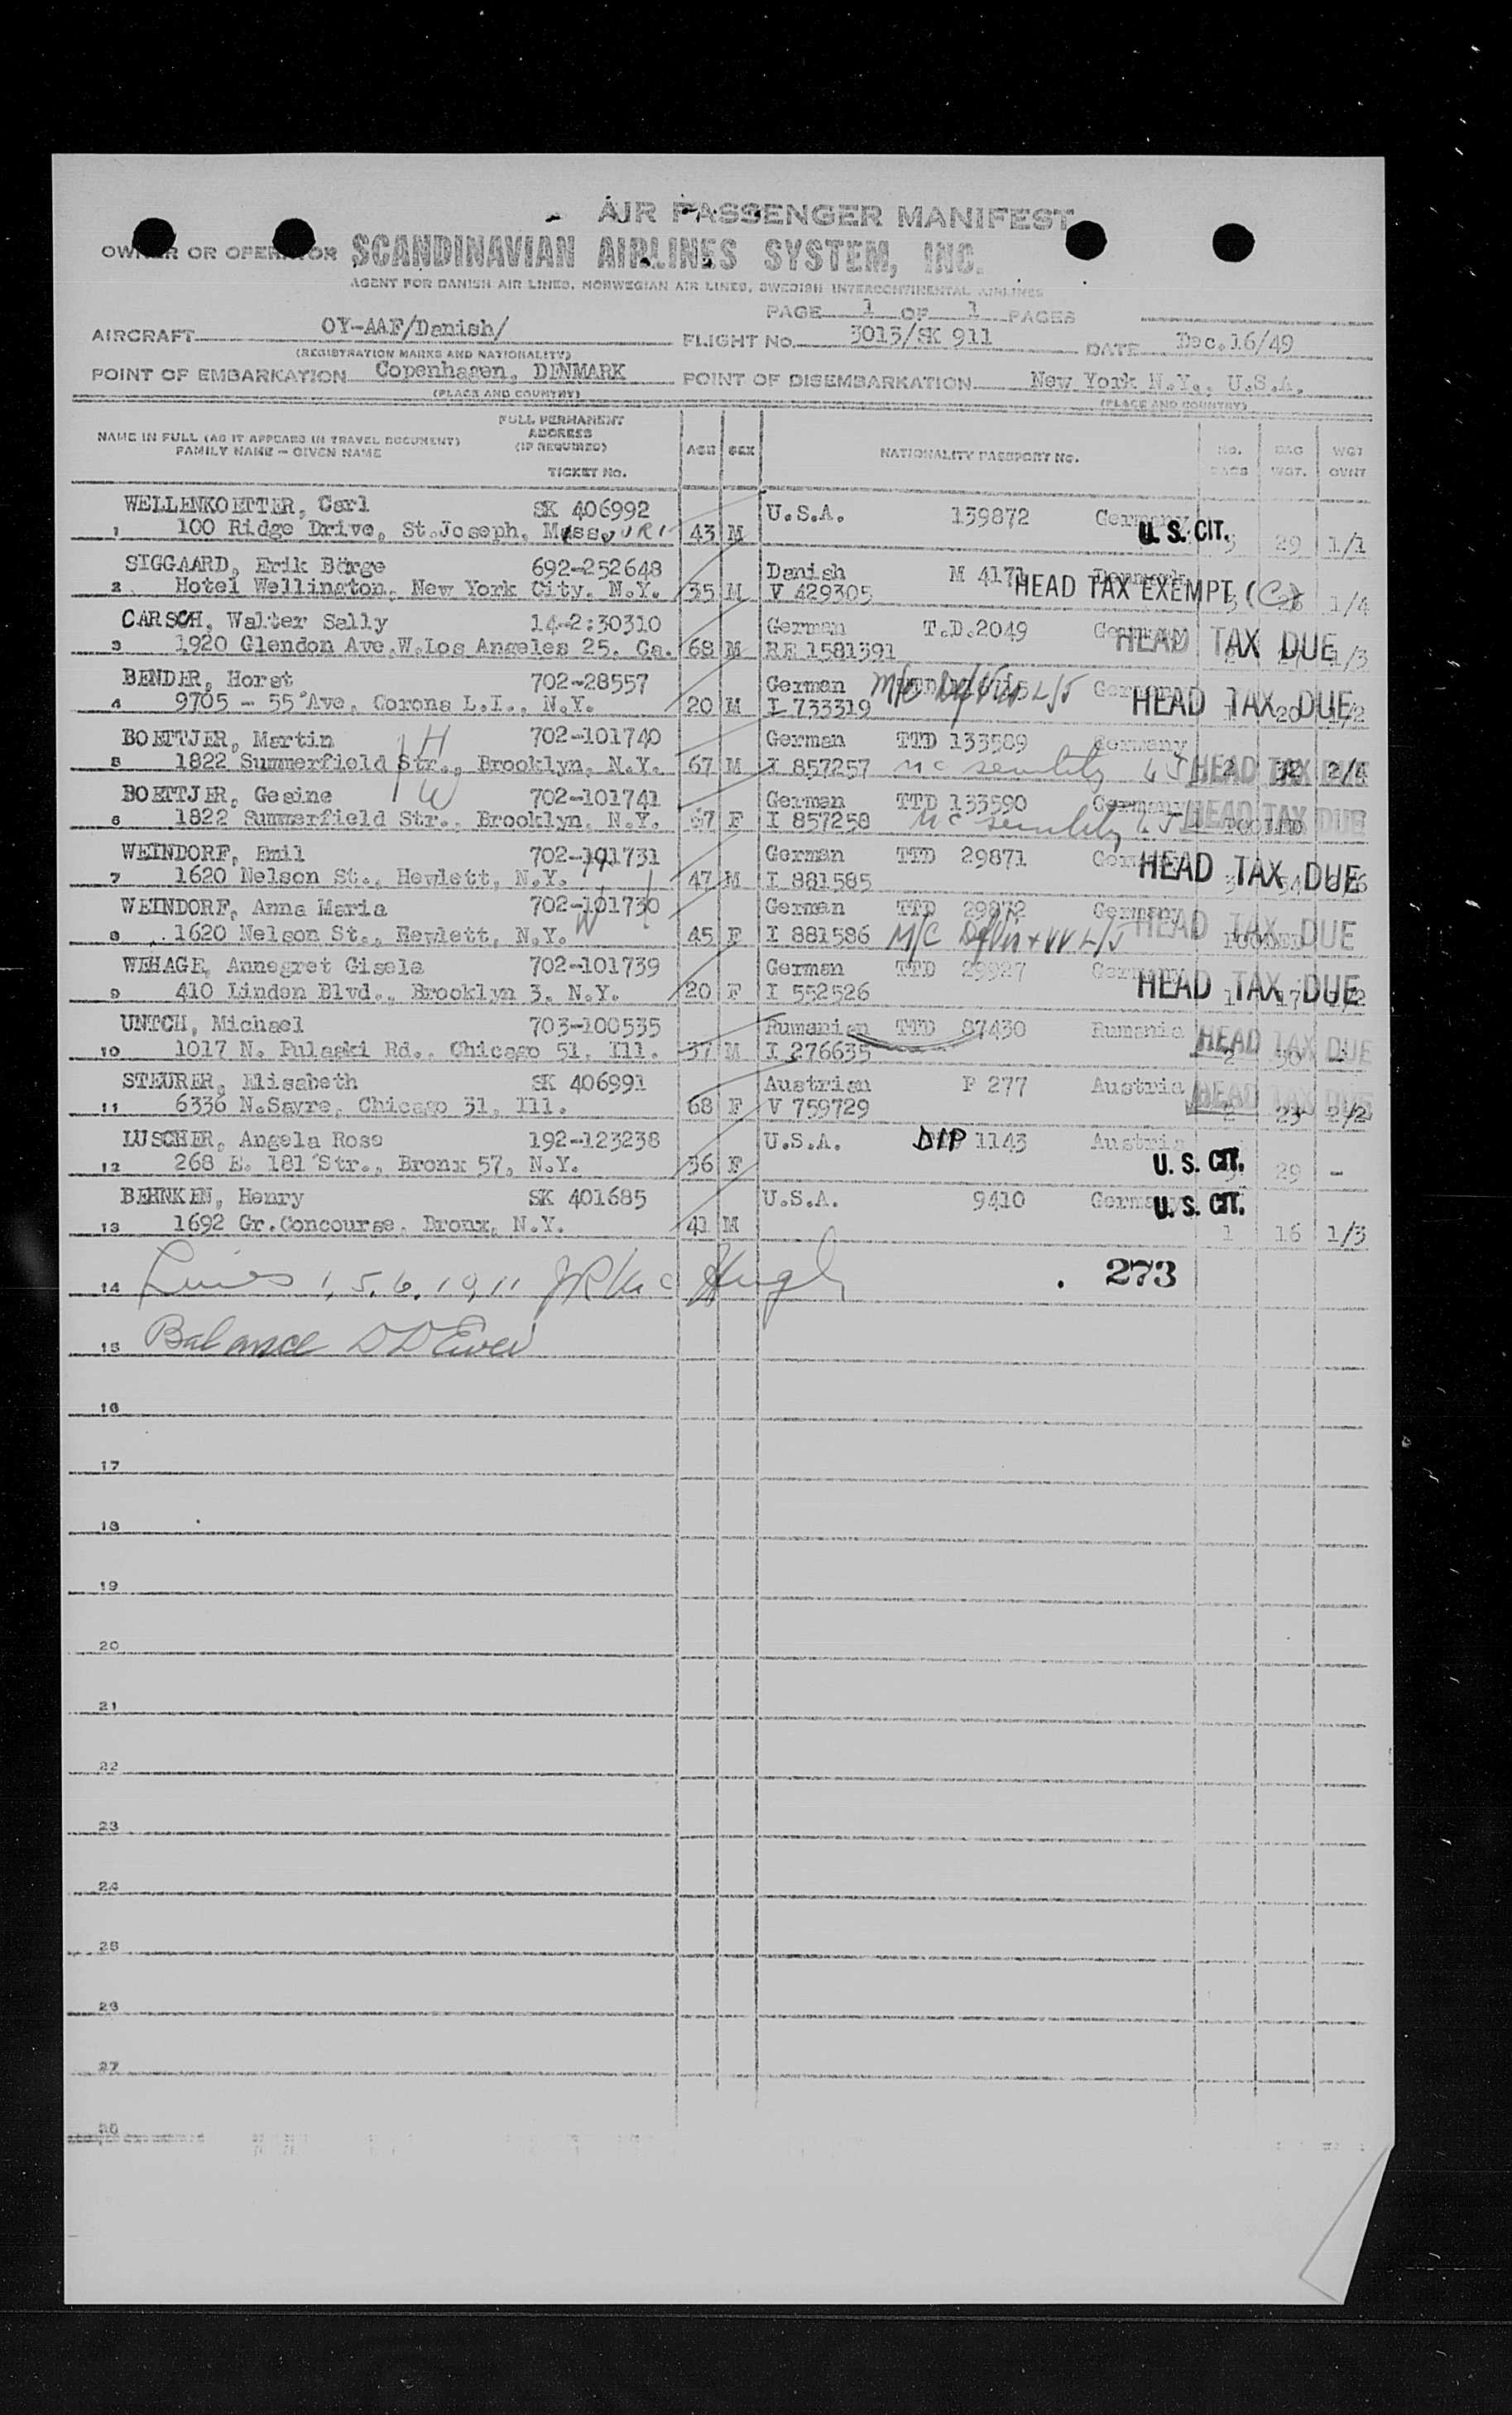 AIR PASSENGER MANIFEST
OWNER OR OPERATOR SCANDINAVIAN AIRLINES SYSTEM, INC.
AGENT FOR DANISH AIR LINES, NORWEGIAN AIR LINES, SWEDISH INTERCONTINENTAL AIRLINES
PAGE 1 OF 1 PAGES
AIRCRAFT OY-AAF/Danish/ FLIGHT No. 3013/SK 911 DATE Dec.16/49
(REGISTRATION MARKS AND NATIONALITY)
POINT OF EMBARKATION Copenhagen, DENMARK POINT OF DISEMBARKATION New York N.Y., U.S.A.
(PLACE AND COUNTRY) (PLACE AND COUNTRY)
NAME IN FULL (AS IT APPEARS IN TRAVEL DOCUMENT) FAMILY NAME — GIVEN NAME FULL PERMANENT ADDRESS (IF REQUIRED) TICKET No. AGE SEX NATIONALITY PASSPORT NO. NO. BAGS BAG WGT. WGT OVNT
WELLENKOETTER, Carl SK 406992 U.S.A. 139872 Germany U. S. CIT.
1 100 Ridge Drive, St.Joseph, 43 M 29 1/1
SIGGAARD, Erik Börge 692-252648 Danish M 4171 Denmark HEAD TAX EXEMPT (C)
2 Hotel Wellington, New York City, N.Y. 35 M V 429305 1/4
CARSCH, Walter Sally 14-2:30310 German T.D.2049 HEAD TAX DUE
3 1920 Glendon Ave.W.Los Angeles 25. Ca. 68 M RE 1581391 1/3
BENDER, Horst 702-28557 German M/C L/J HEAD TAX DUE
4 9705 - 55 Ave, Corona L.I., N.Y. 20 M I 733319 20
BOETTJER, Martin H 702-101740 German TTD 133589 Germany
5 1822 Summerfield Str., Brooklyn, N.Y. 67 M I 857257 M c senility L J HEAD TAX DUE
BOETTJER, Gesine W 702-101741 German TTD 133590 Germany
6 1822 Summerfield Str., Brooklyn, N.Y. 67 F I 857258 M c senility L J HEAD TAX DUE
WEINDORF, Emil 702-101731 German TTD 29871 HEAD TAX DUE
7 1620 Nelson St., Hewlett, N.Y. H 47 M I 881585
WEINDORF, Anna Maria 702-101730 German TTD 29872 Germany HEAD TAX DUE
8 1620 Nelson St., Hewlett, N.Y. W 45 F I 881586 M/C L/J
WEHAGE, Annegret Gisela 702-101739 German TTD 29927 Germany HEAD TAX DUE
9 410 Linden Blvd., Brooklyn 3, N.Y. 20 F I 552526
UNTCH, Michael 703-100535 Rumanian TTD 87430 Rumania HEAD TAX DUE
10 1017 N. Pulaski Rd., Chicago 51, Ill. 37 M I 276635
STEURER, Elisabeth SK 406991 Austrian P 277 Austria HEAD TAX DUE
11 6336 N.Sayre, Chicago 31, Ill. 68 F V 759729 2 23 2/2
LUSCHER, Angela Rose 192-123238 U.S.A. DIP 1143 Austria U. S. CIT.
12 268 E. 181 Str., Bronx 57, N.Y. 36 F 29 -
BEHNKEN, Henry SK 401685 U.S.A. 9410 Germany U. S. CIT.
13 1692 Gr.Concourse, Bronx, N.Y. 41 M 1 16 1/3
14 Lines 1, 5, 6, 10, 11 273
15 Balance
16
17
18
19
20
21
22
23
24
25
26
27